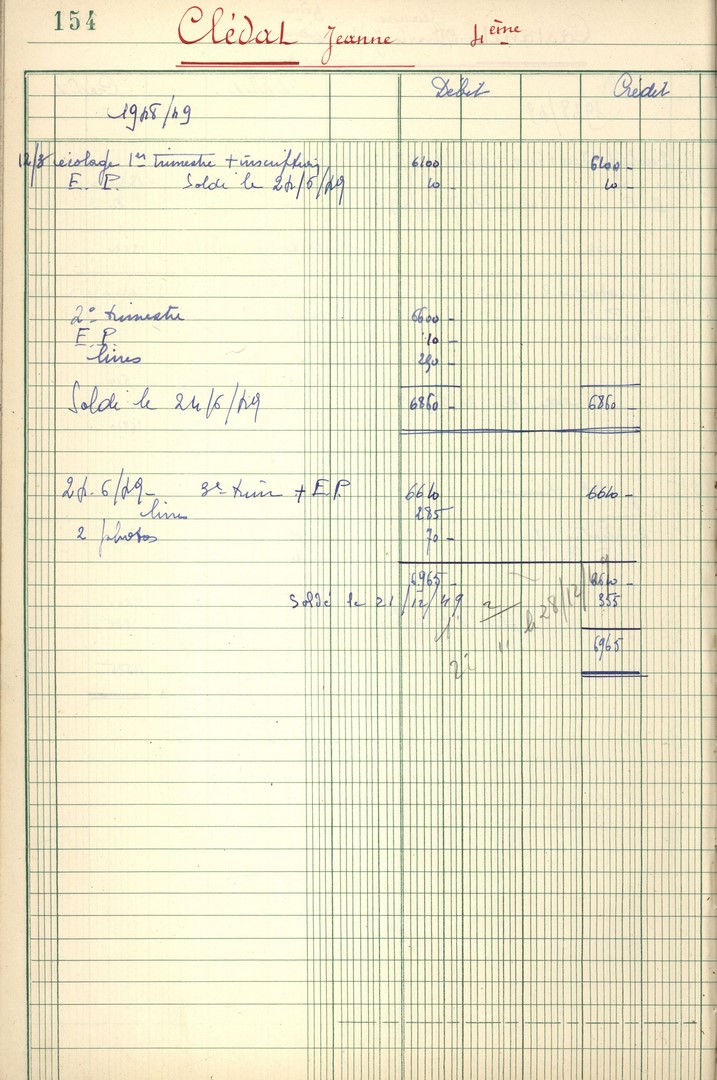 154
Clédat Jeanne 4ème
Débit Crédit
1948/49
12/3 écolage 1er trimestre + inscription 6100 6100 -
E. P. Soldé le 24/6/49 40 - 40 -
2e trimestre 6600 -
E.P. 10 -
livres 250 -
Soldé le 24/6/49 6860 - 6860 -
24.6/49 - 3e trim + E.P. 6610 6610 -
livres 285
2 photos 70 -
6965 - 6610 -
Soldé le 21/12/49 355
le 28/12/49
6965